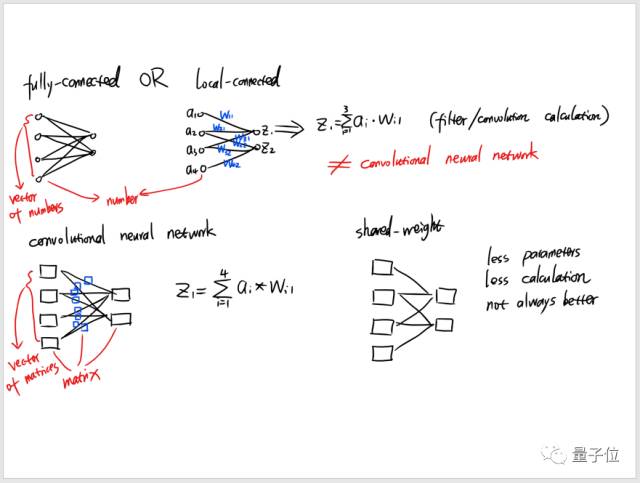 fully-connected OR local-connected
a1
a2
a3
a4
W11
W21
W31
W22
W32
W42
z1
z2
⇒ Z1=∑³ᵢ₌₁ ai·Wi1 (filter/convolution calculation)
≠ convolutional neural network
vector
of numbers
number
convolutional neural network
Z1=∑⁴ᵢ₌₁ ai*Wi1
vector
of matrices
matrix
shared-weight
less parameters
less calculation
not always better
量子位